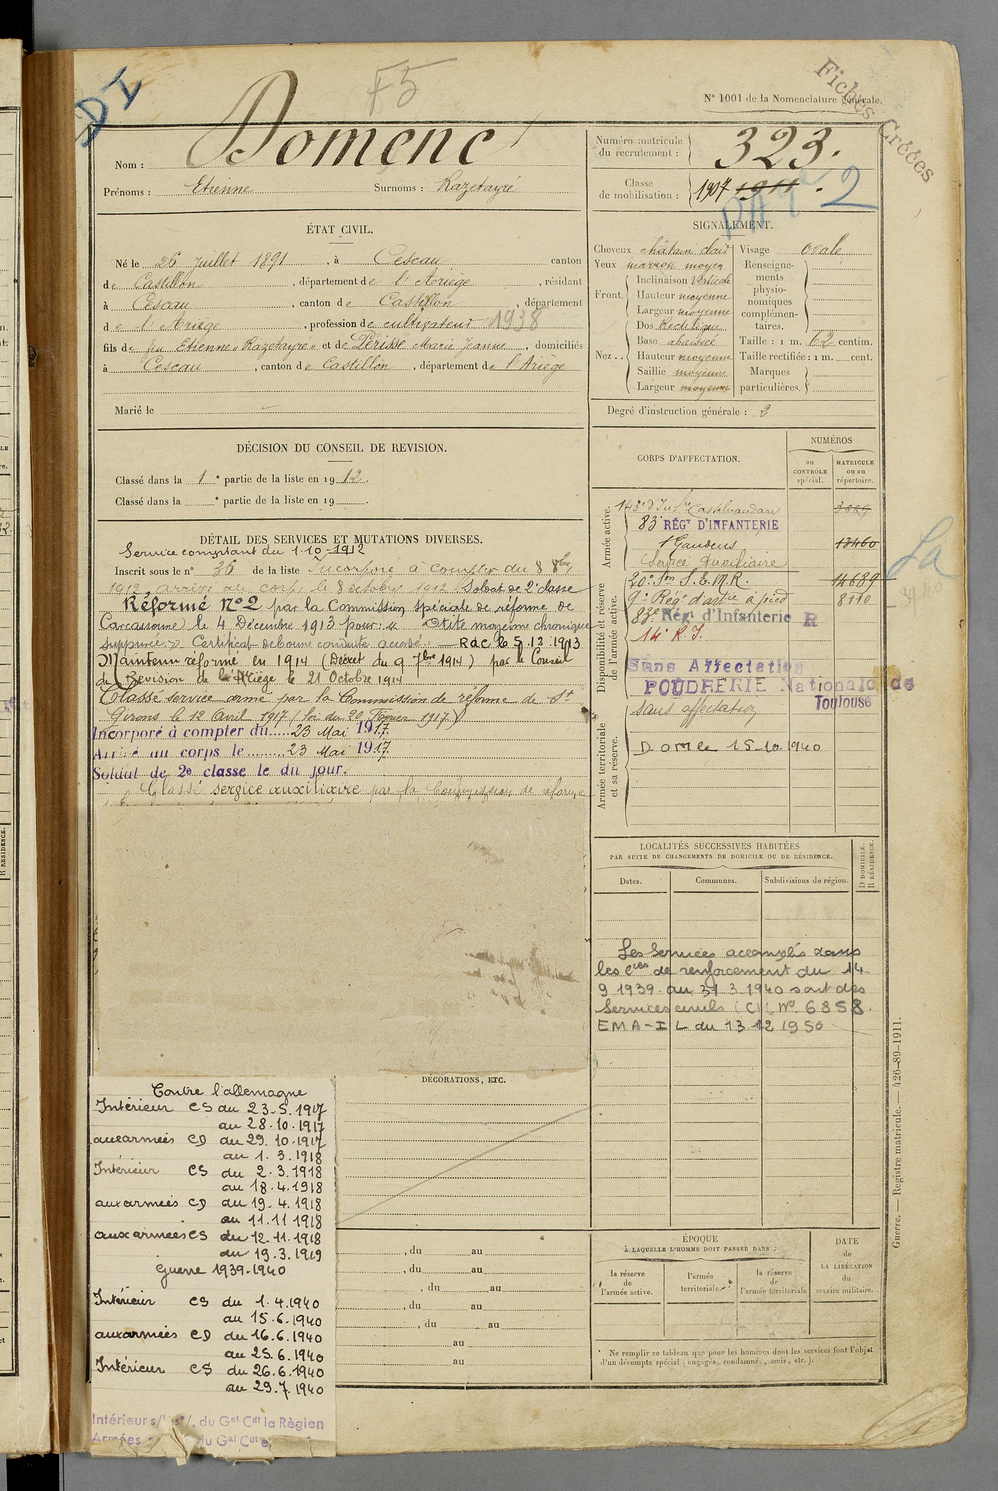 DI
F5
Nº 1001 de la Nomenclature générale.
Fiches Créées
Nom : Domenc
Prénoms : Etienne Surnoms : Razetayré
Numéro matricule du recrutement : 323.
Classe de mobilisation : 1907 1911 . 2
ÉTAT CIVIL.
Né le 26 juillet 1891 , à Cescau canton
de Castillon , département de l'Ariège , résidant
à Cescau , canton de Castillon , département
de l'Ariège , profession de cultivateur 1938
fils de feu Etienne "Razetayre" et de Périsse Marie Jeanne , domiciliés
à Cescau , canton de Castillon , département de l'Ariège
Marié le
SIGNALEMENT.
Cheveux châtain clair
Yeux marron moyen
Front. Inclinaison verticale
Hauteur moyenne
Largeur moyenne
Nez . . Dos Rectiligne
Base abaissée
Hauteur moyenne
Saillie moyenne
Largeur moyenne
Visage ovale
Renseignements physionomiques complémentaires.
Taille : 1 m. 62 centim.
Taille rectifiée : 1 m. cent.
Marques particulières.
Degré d'instruction générale : 2
DÉCISION DU CONSEIL DE REVISION.
Classé dans la 1e partie de la liste en 1912.
Classé dans la e partie de la liste en 19 .
DÉTAIL DES SERVICES ET MUTATIONS DIVERSES.
Service comptant du 1-10-1912
Inscrit sous le nº 36 de la liste Incorporé à compter du 8 8bre
1912, arrivé au corps le 8 octobre 1912 Soldat de 2e classe
Réformé Nº 2 par la Commission spéciale de réforme de
Carcassonne le 4 Décembre 1913 pour : « Otite moyenne chronique
suppurée » Certificat de bonne conduite accordé. Rac le 5.12.1913
Maintenu réformé en 1914 (Décret du 9 7bre 1914) par le Conseil
de Revision de l'Ariège le 21 Octobre 1914
Classé service armé par la Commission de réforme de St
Girons le 12 Avril 1917 (loi du 20 Février 1917)
Incorporé à compter du 23 Mai 1917.
Arrivé au corps le 23 Mai 1917.
Soldat de 2e classe le du jour.
Classé service auxiliaire par la Commission de réforme
CORPS D'AFFECTATION.
NUMÉROS
au CONTRÔLE spécial.
MATRICULE ou au répertoire.
Armée active.
143e d'Infrie Castelnaudary
83e RÉGT D'INFANTERIE
St Gaudens 13460
Service Auxiliaire
Disponibilité et réserve de l'armée active.
20e Son S.E.M.R. 14689
9e Régt d'artie à pied 8110
83e Régt d'Infanterie R
14e R.I.
Sans Affectation
POUDRERIE Nationale de
Toulouse
Armée territoriale et sa réserve.
sans affectation
DOM le 15-10-1940
La
LOCALITÉS SUCCESSIVES HABITÉES
PAR SUITE DE CHANGEMENTS DE DOMICILE OU DE RÉSIDENCE.
Dates. Communes. Subdivisions de région. D DOMICILE. R RÉSIDENCE.
Les services accomplis dans
les Cies de renforcement du 14-
9 1939 au 31 3 1940 sont des
services civils (CI) Nº 6858
EMA-I L du 13 12 1950
DÉCORATIONS, ETC.
Contre l'allemagne
Intérieur CS du 23-5-1917
au 28-10-1917
aux armées CD du 29-10-1917
au 1-3-1918
Intérieur CS du 2-3-1918
au 18-4-1918
aux armées CD du 19-4-1918
au 11 11 1918
aux armées CS du 12-11-1918
au 19-3-1919
Guerre 1939-1940
Intérieur CS du 1-4-1940
au 15-6-1940
aux armées CD du 16-6-1940
au 25-6-1940
Intérieur CS du 26-6-1940
au 29-7-1940
Intérieur s/ du Gal Cdt la Région
Armées du Gal Cdt
, du au
, du au
, du au
, du au
, du au
au
au
ÉPOQUE
À LAQUELLE L'HOMME DOIT PASSER DANS :
la réserve de l'armée active.
l'armée territoriale.
la réserve de l'armée territoriale
DATE de LA LIBÉRATION du service militaire.
* Ne remplir ce tableau que pour les hommes dont les services font l'objet
d'un décompte spécial (engagés, condamnés, omis, etc.).
Guerre. — Registre matricule. — 426-89-1911.